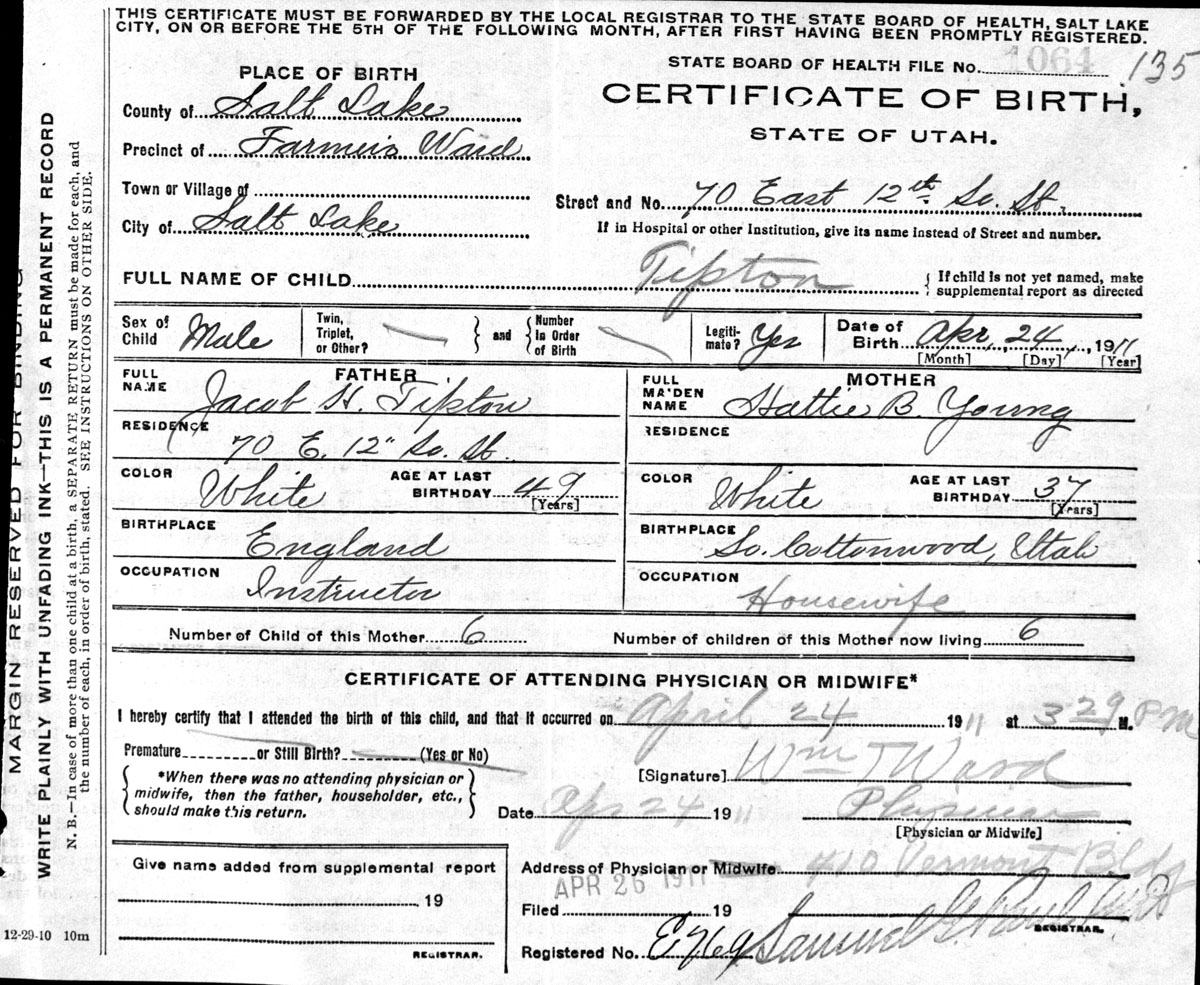 THIS CERTIFICATE MUST BE FORWARDED BY THE LOCAL REGISTRAR TO THE STATE BOARD OF HEALTH, SALT LAKE
CITY, ON OR BEFORE THE 5TH OF THE FOLLOWING MONTH, AFTER FIRST HAVING BEEN PROMPTLY REGISTERED.
STATE BOARD OF HEALTH FILE No. 1064 135
PLACE OF BIRTH
CERTIFICATE OF BIRTH,
STATE OF UTAH.
County of Salt Lake
Precinct of Farmers Ward
Town or Village of
Street and No. 70 East 12th So. St.
City of Salt Lake
If in Hospital or other Institution, give its name instead of Street and number.
FULL NAME OF CHILD Tipton
{ If child is not yet named, make
supplemental report as directed
Sex of
Child Male
Twin,
Triplet,
or Other?
and
Number
in Order
of Birth
Legiti-
mate? Yes
Date of
Birth Apr. 24, 1911
[Month] [Day] [Year]
FATHER
FULL
NAME
Jacob H. Tipton
RESIDENCE
70 E. 12" So. St.
COLOR White
AGE AT LAST
BIRTHDAY 49
[Years]
BIRTHPLACE
England
OCCUPATION
Instructor
MOTHER
FULL
MA'DEN
NAME
Hattie B. Young
RESIDENCE
COLOR White
AGE AT LAST
BIRTHDAY 37
[Years]
BIRTHPLACE
So. Cottonwood, Utah
OCCUPATION
Housewife
Number of Child of this Mother 6
Number of children of this Mother now living 6
CERTIFICATE OF ATTENDING PHYSICIAN OR MIDWIFE*
I hereby certify that I attended the birth of this child, and that it occurred on April 24 1911 at 3 29 M. PM
Premature or Still Birth? (Yes or No)
*When there was no attending physician or
midwife, then the father, householder, etc.,
should make this return.
[Signature] Wm T Ward
Date Apr 24 1911
Physician
[Physician or Midwife]
Give name added from supplemental report
19
REGISTRAR.
Address of Physician or Midwife 410 Vermont Bldg
APR 26 1911
Filed 19
Registered No. E769
Samuel G. Paul
REGISTRAR.
12-29-10 10m
MARGIN RESERVED FOR BINDING
WRITE PLAINLY WITH UNFADING INK—THIS IS A PERMANENT RECORD
N. B.—In case of more than one child at a birth, a SEPARATE RETURN must be made for each, and
the number of each, in order of birth, stated. SEE INSTRUCTIONS ON OTHER SIDE.